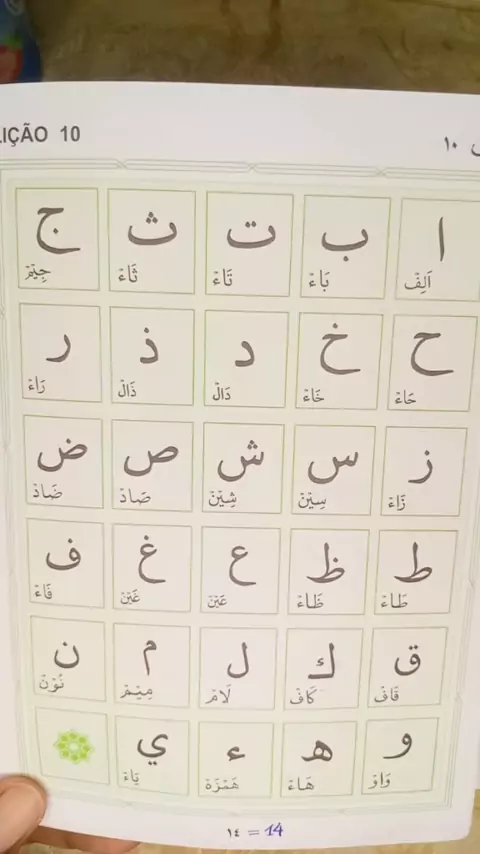 LIÇÃO 10
١٠
ا ب ت ث ج
اَلِفْ بَاءْ تَاءْ ثَاءْ جِيْمْ
ح خ د ذ ر
حَاءْ خَاءْ دَالْ ذَالْ رَاءْ
ز س ش ص ض
زَاءْ سِيْنْ شِيْنْ صَادْ ضَادْ
ط ظ ع غ ف
طَاءْ ظَاءْ عَيْنْ غَيْنْ فَاءْ
ق ك ل م ن
قَافْ كَافْ لَامْ مِيْمْ نُوْنْ
و ه ء ي
وَاوْ هَاءْ هَمْزَةْ يَاءْ
١٤ = 14